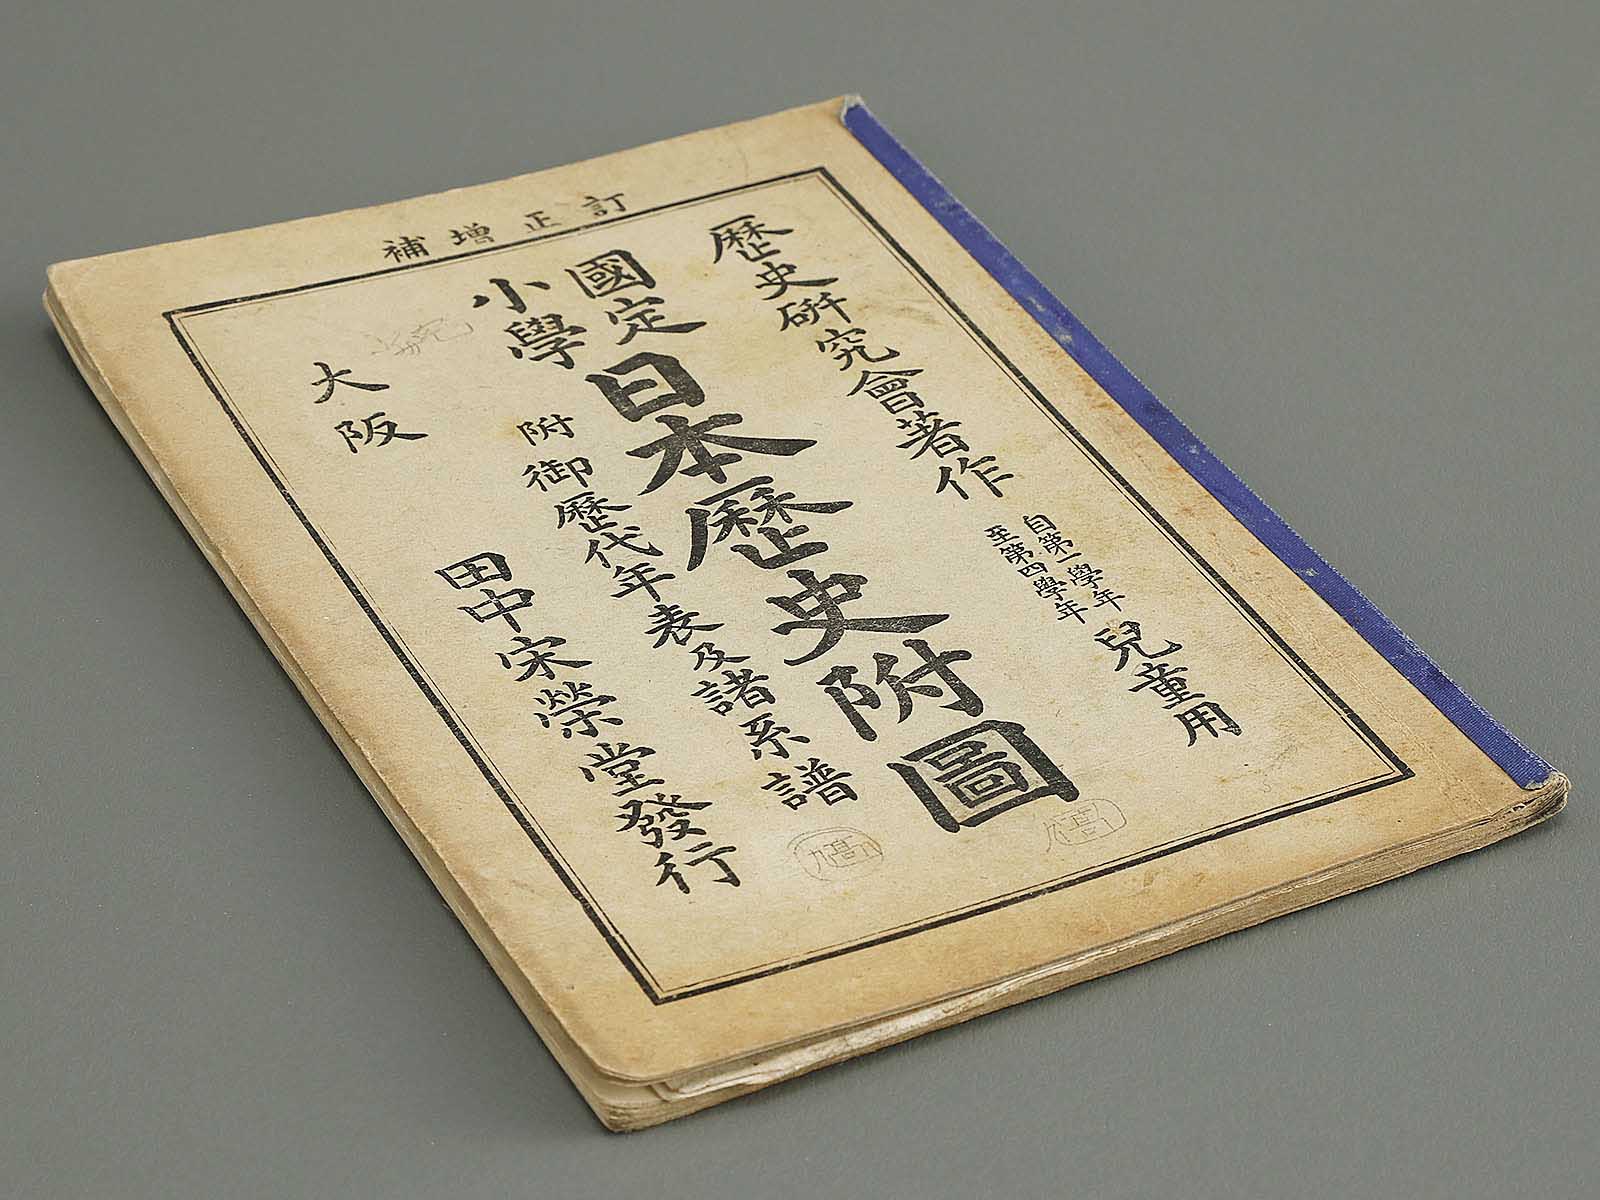 訂正増補
歴史研究會著作
自第一學年
至第四學年
兒童用
國定
小學
日本歴史附圖
附御歴代年表及諸系譜
大阪
田中宋榮堂發行